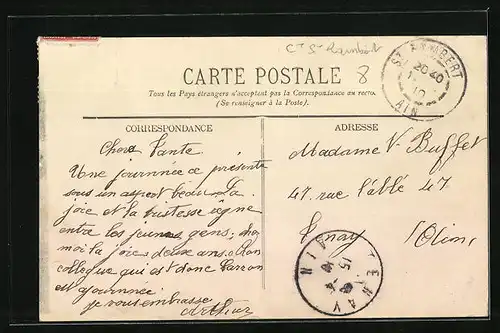 Cne St Rambert
CARTE POSTALE
8
Tous les Pays étrangers n'acceptent pas la Correspondance au recto.
(Se renseigner à la Poste).
ST RAMBERT
20 40
10
AIN
CORRESPONDANCE
ADRESSE
Chère Tante.
Une journnée ce présente
sous un aspect beau. La
joie et la tristesse règne
entre les jeunes gens;
moi la joie, deux ans. Mon
collogue qui est donc Larcon
est ajournée.
je vous embrasse
Arthur
Madame V. Buffet
47. rue l'ablé 47
Tenay (Ain)
TENAY
15 -4
10
AIN